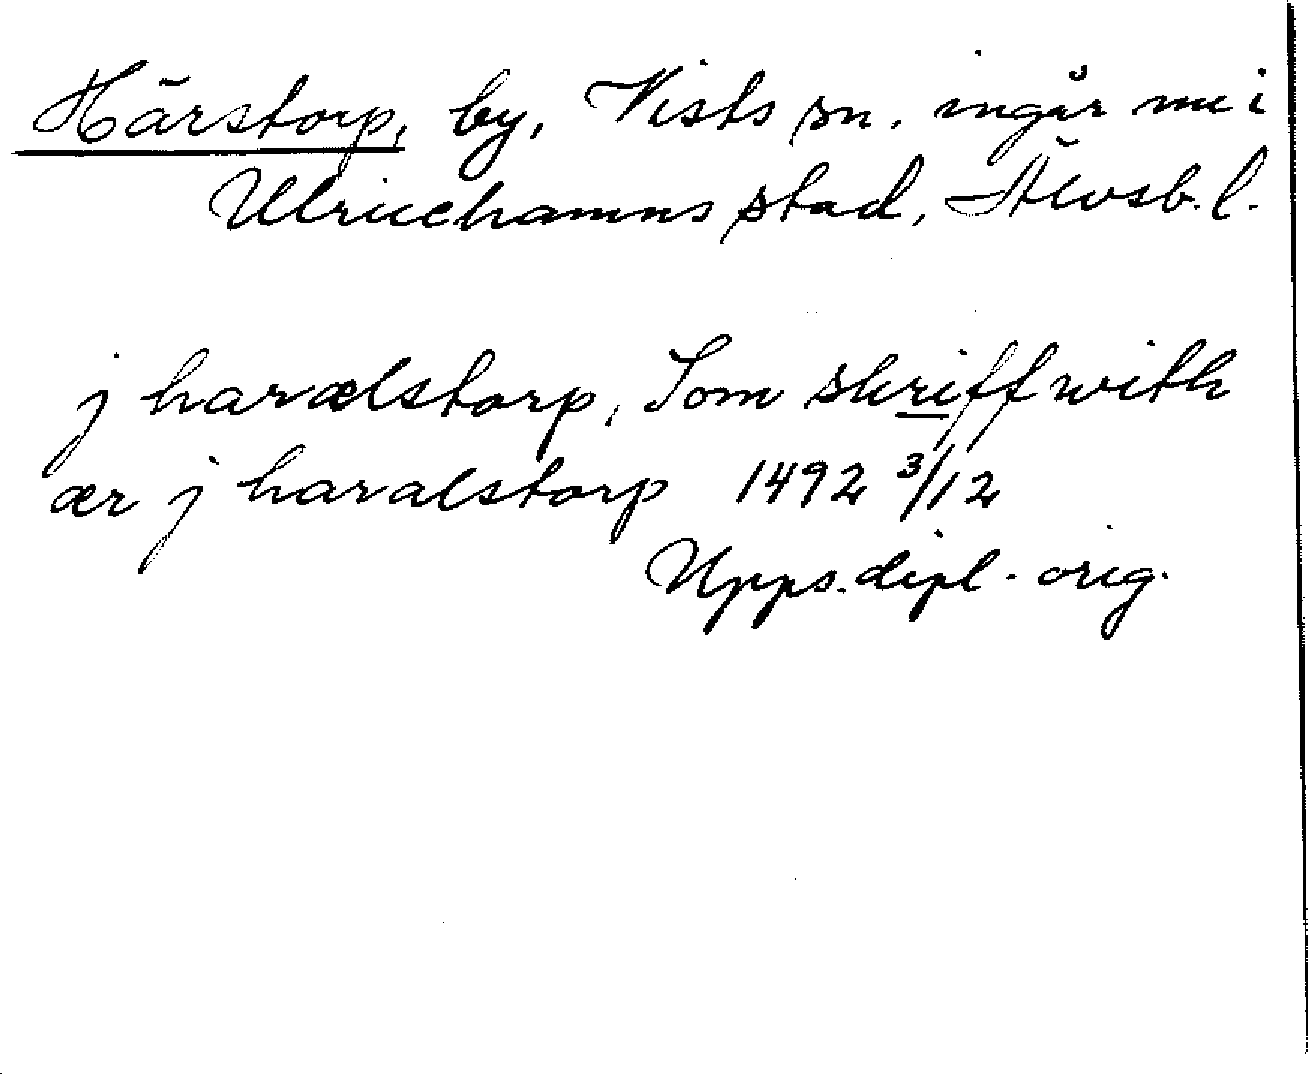 Härstorp, by, Vists sn. ingår nu i
Ulricehamns stad, Älvsb. l.
j harælstorp, Som skriffwith
ær j haralstorp 1492 3/12
Upps. dipl. orig.